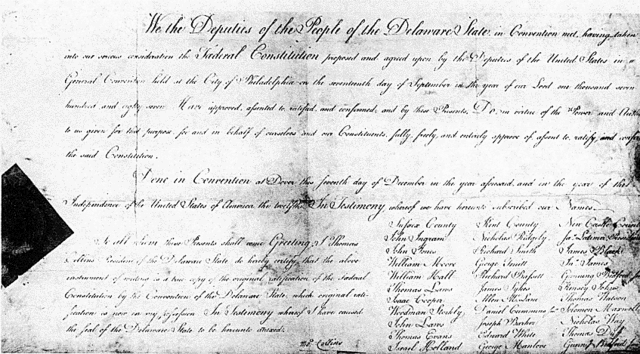 We the Deputies of the People of the Delaware State, in Convention met, having taken
into our serious consideration the Fœderal Constitution proposed and agreed upon by the Deputies of the United States in a
General Convention held at the City of Philadelphia on the seventeenth day of September in the year of our Lord one thousand seven
hundred and eighty seven, Have approved, assented to, ratified, and confirmed, and by these Presents, Do, in virtue of the Power and
to us given for that purpose for and in behalf of ourselves and our Constituents, fully, freely, and entirely approve of, assent to, ratify, and confirm
the said Constitution.
Done in Convention at Dover this seventh day of December in the year aforesaid, and in the year of the
Independence of the United States of America the twelfth. In Testimony whereof we have hereunto subscribed our Names.
Sussex County Kent County New Castle County
To all whom these Presents shall come Greeting, I Thomas
John Ingram Nicholas Ridgely
Collins President of the Delaware State do hereby certify, that the above
John Jones Richard Smith
instrument of writing is a true copy of the original ratification of the Fœderal
William Moore George Truitt Jas. James
William Hall Richard Bassett Gunning Bedford
Constitution by the Convention of the Delaware State, which original rati-
Thomas Laws James Sykes Kensey Johns
Isaac Cooper Allen McLane Thomas Watson
fication is now in my possession. In Testimony whereof I have caused
Woodman Storkly Daniel Cummins Solomon Maxwell
John Laws Joseph Barker Nicholas Way
the seal of the Delaware State to be hereunto annexed.
Thomas Evans Edward White Thomas Duff
Israel Holland George Manlove
Tho. Collins